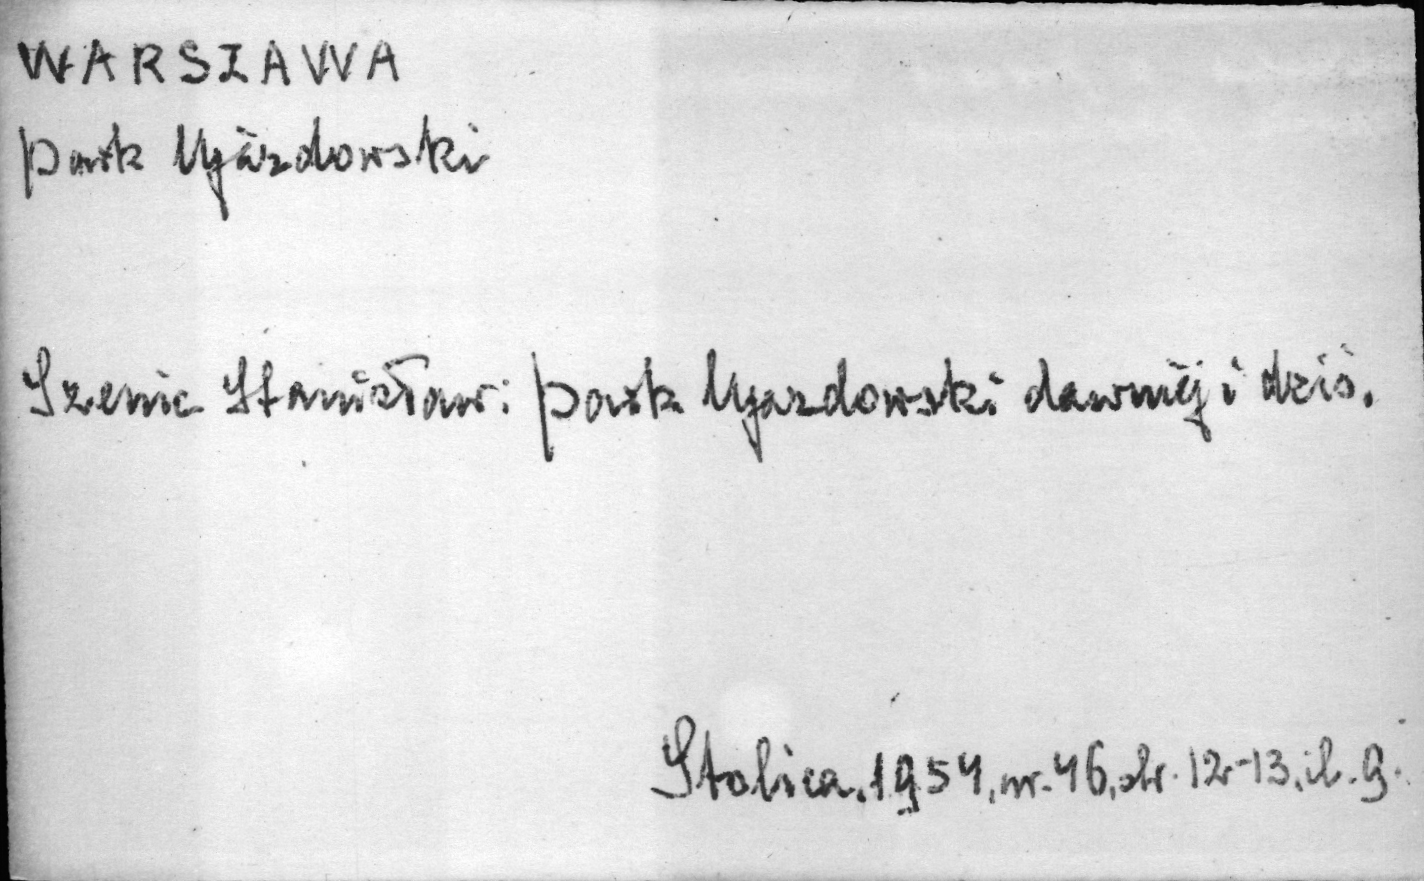 WARSZAWA
park Ujazdowski
Szenic Stanisław: park Ujazdowski dawniej i dziś.
Stolica, 1954, nr. 46, str. 12-13, il. 9.